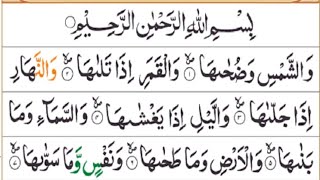 بِسْمِ اللهِ الرَّحْمٰنِ الرَّحِيْمِ
وَالشَّمْسِ وَضُحٰىهَا ۝١ وَالْقَمَرِ اِذَا تَلٰىهَا ۝٢ وَالنَّهَارِ
اِذَا جَلّٰىهَا ۝٣ وَالَّيْلِ اِذَا يَغْشٰىهَا ۝٤ وَالسَّمَآءِ وَمَا
بَنٰىهَا ۝٥ وَالْاَرْضِ وَمَا طَحٰىهَا ۝٦ وَنَفْسٍ وَّمَا سَوّٰىهَا ۝٧